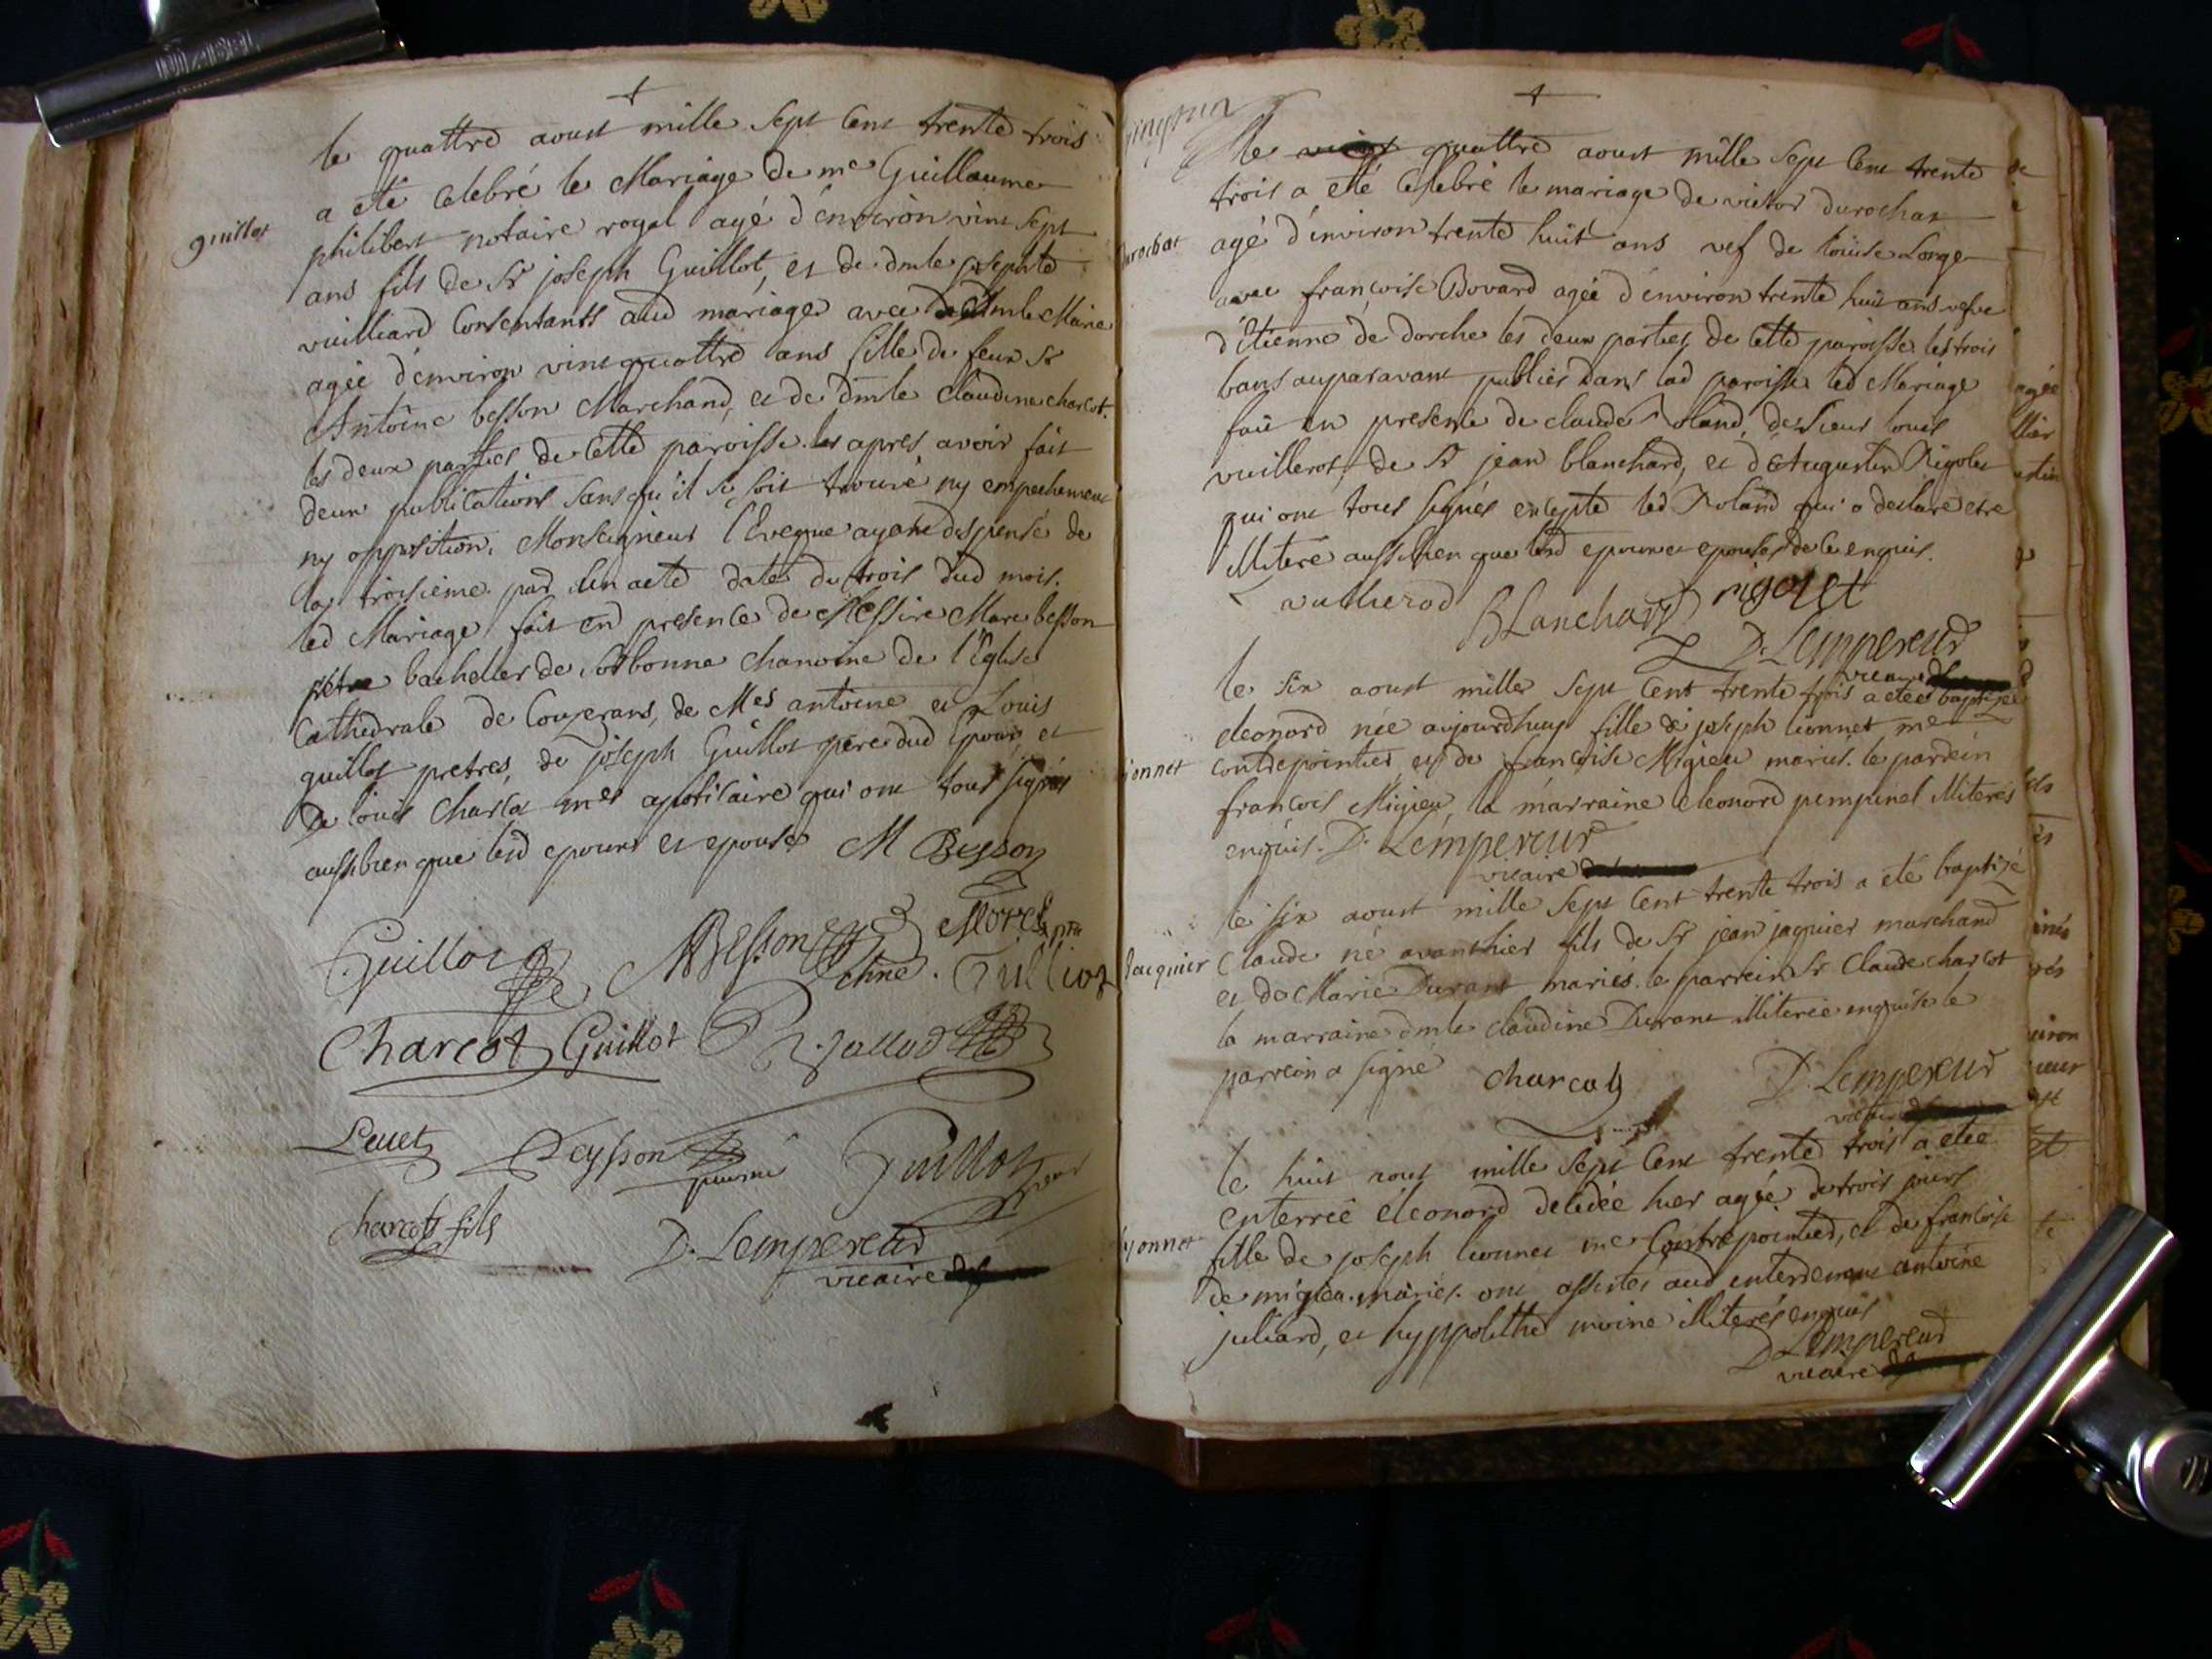 le quattre aoust mille sept cent trente trois
a eté celebré le Mariage de me Guillaume
philibert notaire royal agé d'environ vint sept
guillot
ans fils de Sr joseph Guillot, et de dmle josephte
vuilliard consentants aud mariage avec dmle Marie
agée d'environ vint quattre ans fille de feu Sr
Antoine besson Marchand, et de dmle claudine charcot.
les deux parties de cette paroisse. apres avoir fait
deux publications sans qu'il se soit trouvé ny empechement
ny opposition. Monseigneur l'Eveque ayant dispensé de
la troisieme par un acte daté du trois dud mois.
led Mariage fait en presence de Messire Marc besson
pretre bachelier de Sorbonne chanoine de l'Eglise
Cathedrale de Couzerans, de Mes antoine et Louis
guillot pretres, de joseph Guillot pere dud Epoux et
de louis Charcot me apoticaire qui ont tous signés
aussi bien que lesd epoux et epouse M Besson
Guillot MBesson chne. Morel ptre
Charcot Guillot
Leuet Guillot
charcot fils D. Lempereur
vicaire
le quattre aoust mille sept cent trente
trois a eté celebré le mariage de victor durochat
durochat
agé d'environ trente huit ans vef de loüise Longe
avec francoise Bovard agée d'environ trente huit ans vefve
d'etienne de dorche les deux parties de cette paroisse. les trois
bans auparavant publiés dans lad paroisse led Mariage
fait en presence de claude Roland, de Sieur louis
vuillerot, de Sr jean blanchard, et d'Augustin Rigolet
qui ont tous signés excepté led Roland qui a declaré etre
illiteré aussi bien que lesd epoux et epouse de ce enquis.
vutherod Blanchard rigolet
D. Lempereur
vicaire
le six aoust mille sept cent trente trois a eté baptizée
eleonord née aujourdhuy fille de joseph lionnet me
lionnet
contrepointier et de francoise Migieu mariés. le parrein
francois Migieu, la marraine Eleonord pempinel illiterés
enquis. D. Lempereur
vicaire
le six aoust mille sept cent trente trois a eté baptizé
Claude né avanthier fils de Sr jean jaquier marchand
Jacquier
et de Marie Durant mariés. le parrein Sr Claude charcot
la marraine dmle claudine Durant illiterée enquise le
parrein a signé charcot D. Lempereur
vicaire
le huit aout mille sept cent trente trois a eteé
enterreé éleonord decedée hier agée de trois jours
lyonnet
fille de joseph lionnet me Contrepointier, et de francoise
de migieu mariés. ont assistés aud enterrement antoine
juliard, et hyppolithe moine illiterés enquis
D. Lempereur
vicaire